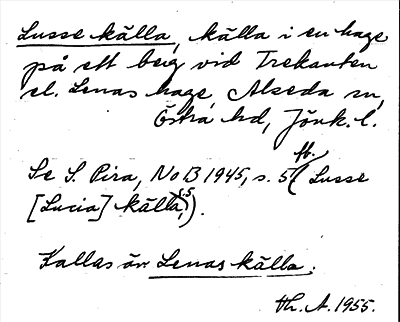 Lusse källa, källa i en hage
på ett berg vid Trekanten
el. Lenas hage, Alseda sn,
Östra hd, Jönk. l.
Se S. Pira, NoB 1945, s. 5 ff. (Lusse
[Lucia] källa).
Kallas äv. Lenas källa.
Th. A. 1955.